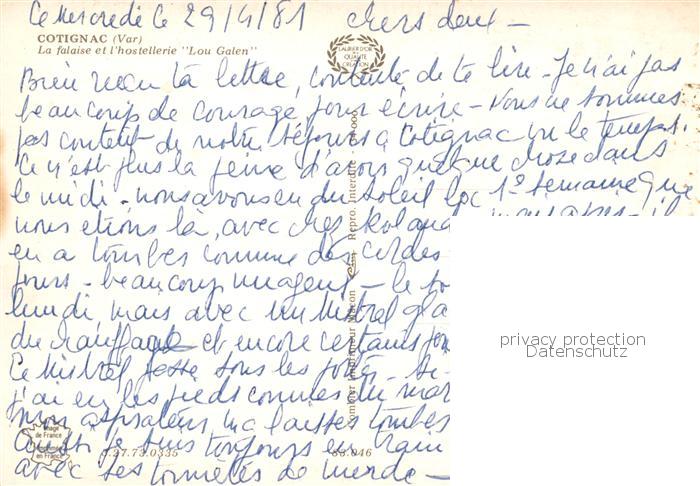 Ce Mercredi le 29/4/81 chers deux -
COTIGNAC (Var)
La falaise et l'hostellerie "Lou Galen"
LAURIER D'OR
QUALITÉ
CRÉATION
Bien recu ta lettre, contente de te lire - Je n'ai pas
beaucoup de courage pour écrire - Nous ne sommes
pas content de notre séjours a Cotignac vu le temps.
Ce n'est plus la peine d'avoir quelque chose dans
le midi - nous avons eu du soleil 1º semaine que
nous etions là, avec chez Roland
en a tombes comme des cordes
jours - beaucoup nuageux - le
lundi, mais avec un Mistral gla
du chauffage et encore certains jou
Ce Mistral passe sous les portes -
j'ai eu les pieds comme du mar
mon aspirateur m'a laisses tombes
aussi je suis toujours en train
avec ses tonnerres de merde -
Combier Imprimeur Macon Repro. Interdite
Image
de France
3.27.73.0335
83.046
privacy protection
Datenschutz